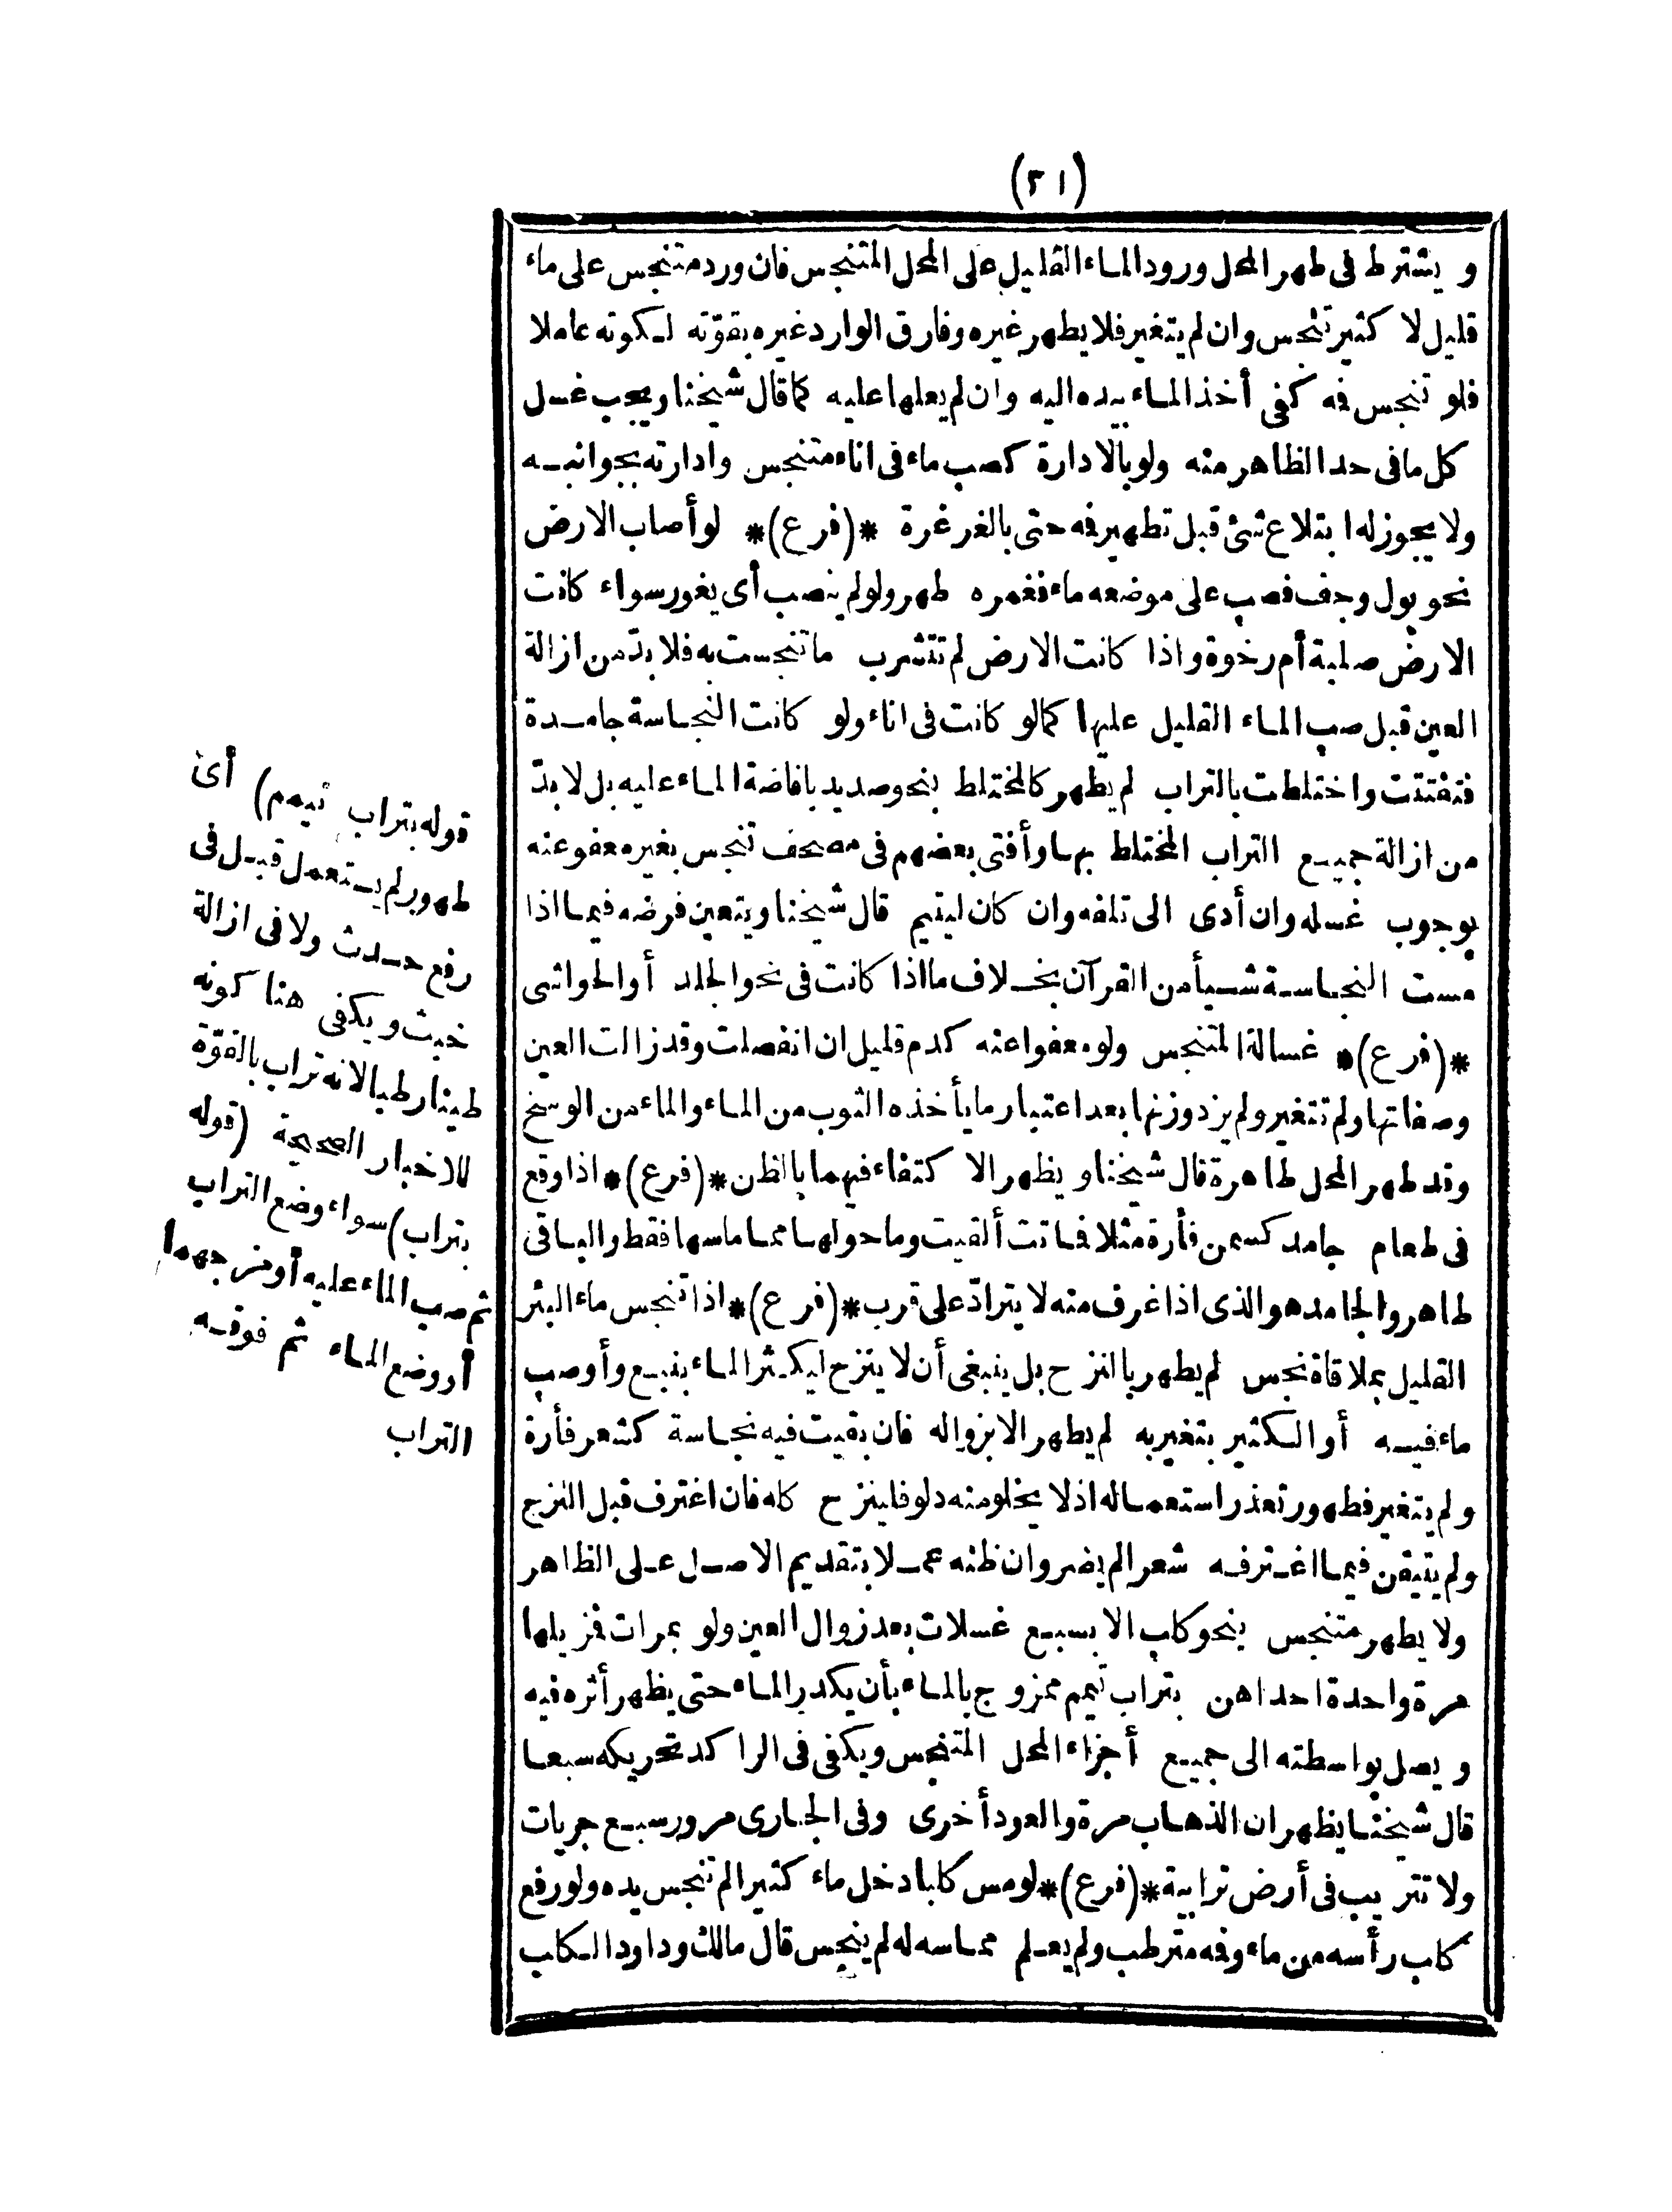 (٣١)
ويشترط فى طهر المحل ورود الماء القليل على المحل المتنجس فان ورد متنجس على ماء
قليل لا كثير تنجس وان لم يتغير فلا يطهر غيره وفارق الوارد غيره بقوّته لكونه عاملا
فلو تنجس فه كفى أخذ الماء بيده اليه وان لم يعلها عليه كما قال شيخنا ويجب غسل
كل ما فى حد الظاهر منه ولو بالادارة كصب ماء فى اناء متنجس وادارته بجوانبه
ولا يجوز له ابتلاع شئ قبل تطهير فه حتى بالغرغرة *(فرع)* لو أصاب الارض
نحو بول وجف فصب على موضعه ماء فغمره طهر ولو لم ينصب أى يغور سواء كانت
الارض صلبة أم رخوة واذا كانت الارض لم تتشرب ما تنجست به فلا بدّ من ازالة
العين قبل صب الماء القليل عليها كما لو كانت فى اناء ولو كانت النجاسة جامدة
فتفتتت واختلطت بالتراب لم يطهر كالمختلط بنحو صديد بافاضة الماء عليه بل لا بدّ
من ازالة جميع التراب المختلط بها وأفتى بعضهم فى مصحف تنجس بغير معفو عنه
بوجوب غسله وان أدى الى تلفه وان كان ليتيم قال شيخنا ويتعين فرضه فيما اذا
مست النجاسة شيأ من القرآن بخلاف ما اذا كانت فى نحو الجلد أو الحواشى
*(فرع)* غسالة المتنجس ولو معفوا عنه كدم قليل ان انفصلت وقد زالت العين
وصفاتها ولم تتغير ولم يزد وزنها بعد اعتبار ما يأخذه الثوب من الماء والماء من الوسخ
وقد طهر المحل طاهرة قال شيخنا ويظهر الاكتفاء فيهما بالظن *(فرع)* اذا وقع
فى طعام جامد كسمن فأرة مثلا فماتت ألقيت وما حولها مما ماسها فقط والباقى
طاهر والجامد هو الذى اذا غرف منه لا يترادّ على قرب *(فرع)* اذا تنجس ماء البئر
القليل بملاقاة نجس لم يطهر بالنزح بل ينبغى أن لا ينزح ليكثر الماء بنبع وأو صب
ماء فيه أو الكثير بتغير به لم يطهر الا بزواله فان بقيت فيه نجاسة كشعر فأرة
ولم يتغير فطهور تعذر استعماله اذ لا يخلو منه دلو فلينزح كله فان اغترف قبل النزح
ولم يتيقن فيما اغترفه شعرا لم يضر وان ظنه عملا بتقديم الاصل على الظاهر
ولا يطهر متنجس بنحو كلب الا بسبع غسلات بعد زوال العين ولو بمرات فمزيلها
مرة واحدة احداهن بتراب تيمم ممزوج بالماء بأن يكدر الماء حتى يظهر أثره فيه
ويصل بواسطته الى جميع أجزاء المحل المتنجس ويكفى فى الراكد تحريكه سبعا
قال شيخنا يظهر ان الذهاب مرة والعود أخرى وفى الجارى مرور سبع جريات
ولا تتريب فى أرض ترابية *(فرع)* لو مس كلبا داخل ماء كثير لم تنجس يده ولو رفع
كلب رأسه من ماء وفه مترطب ولم يعلم مماسه له لم ينجس قال مالك وداود الكلب
قوله بتراب تيمم) أى
طهور لم يستعمل قبل فى
رفع حدث ولا فى ازالة
خبث ويكفى هنا كونه
طينا رطبا لانه تراب بالقوّة
للاخبار الصحيحة (قوله
بتراب) سواء وضع التراب
ثم صب الماء عليه أو مزجهما
أو وضع الماء ثم فوقه
التراب